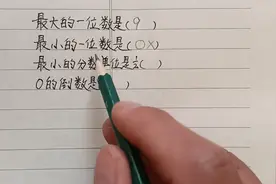 最大的一位数是(9)
最小的一位数是(0×)
最小的分数单位是½( )
0的倒数是( )